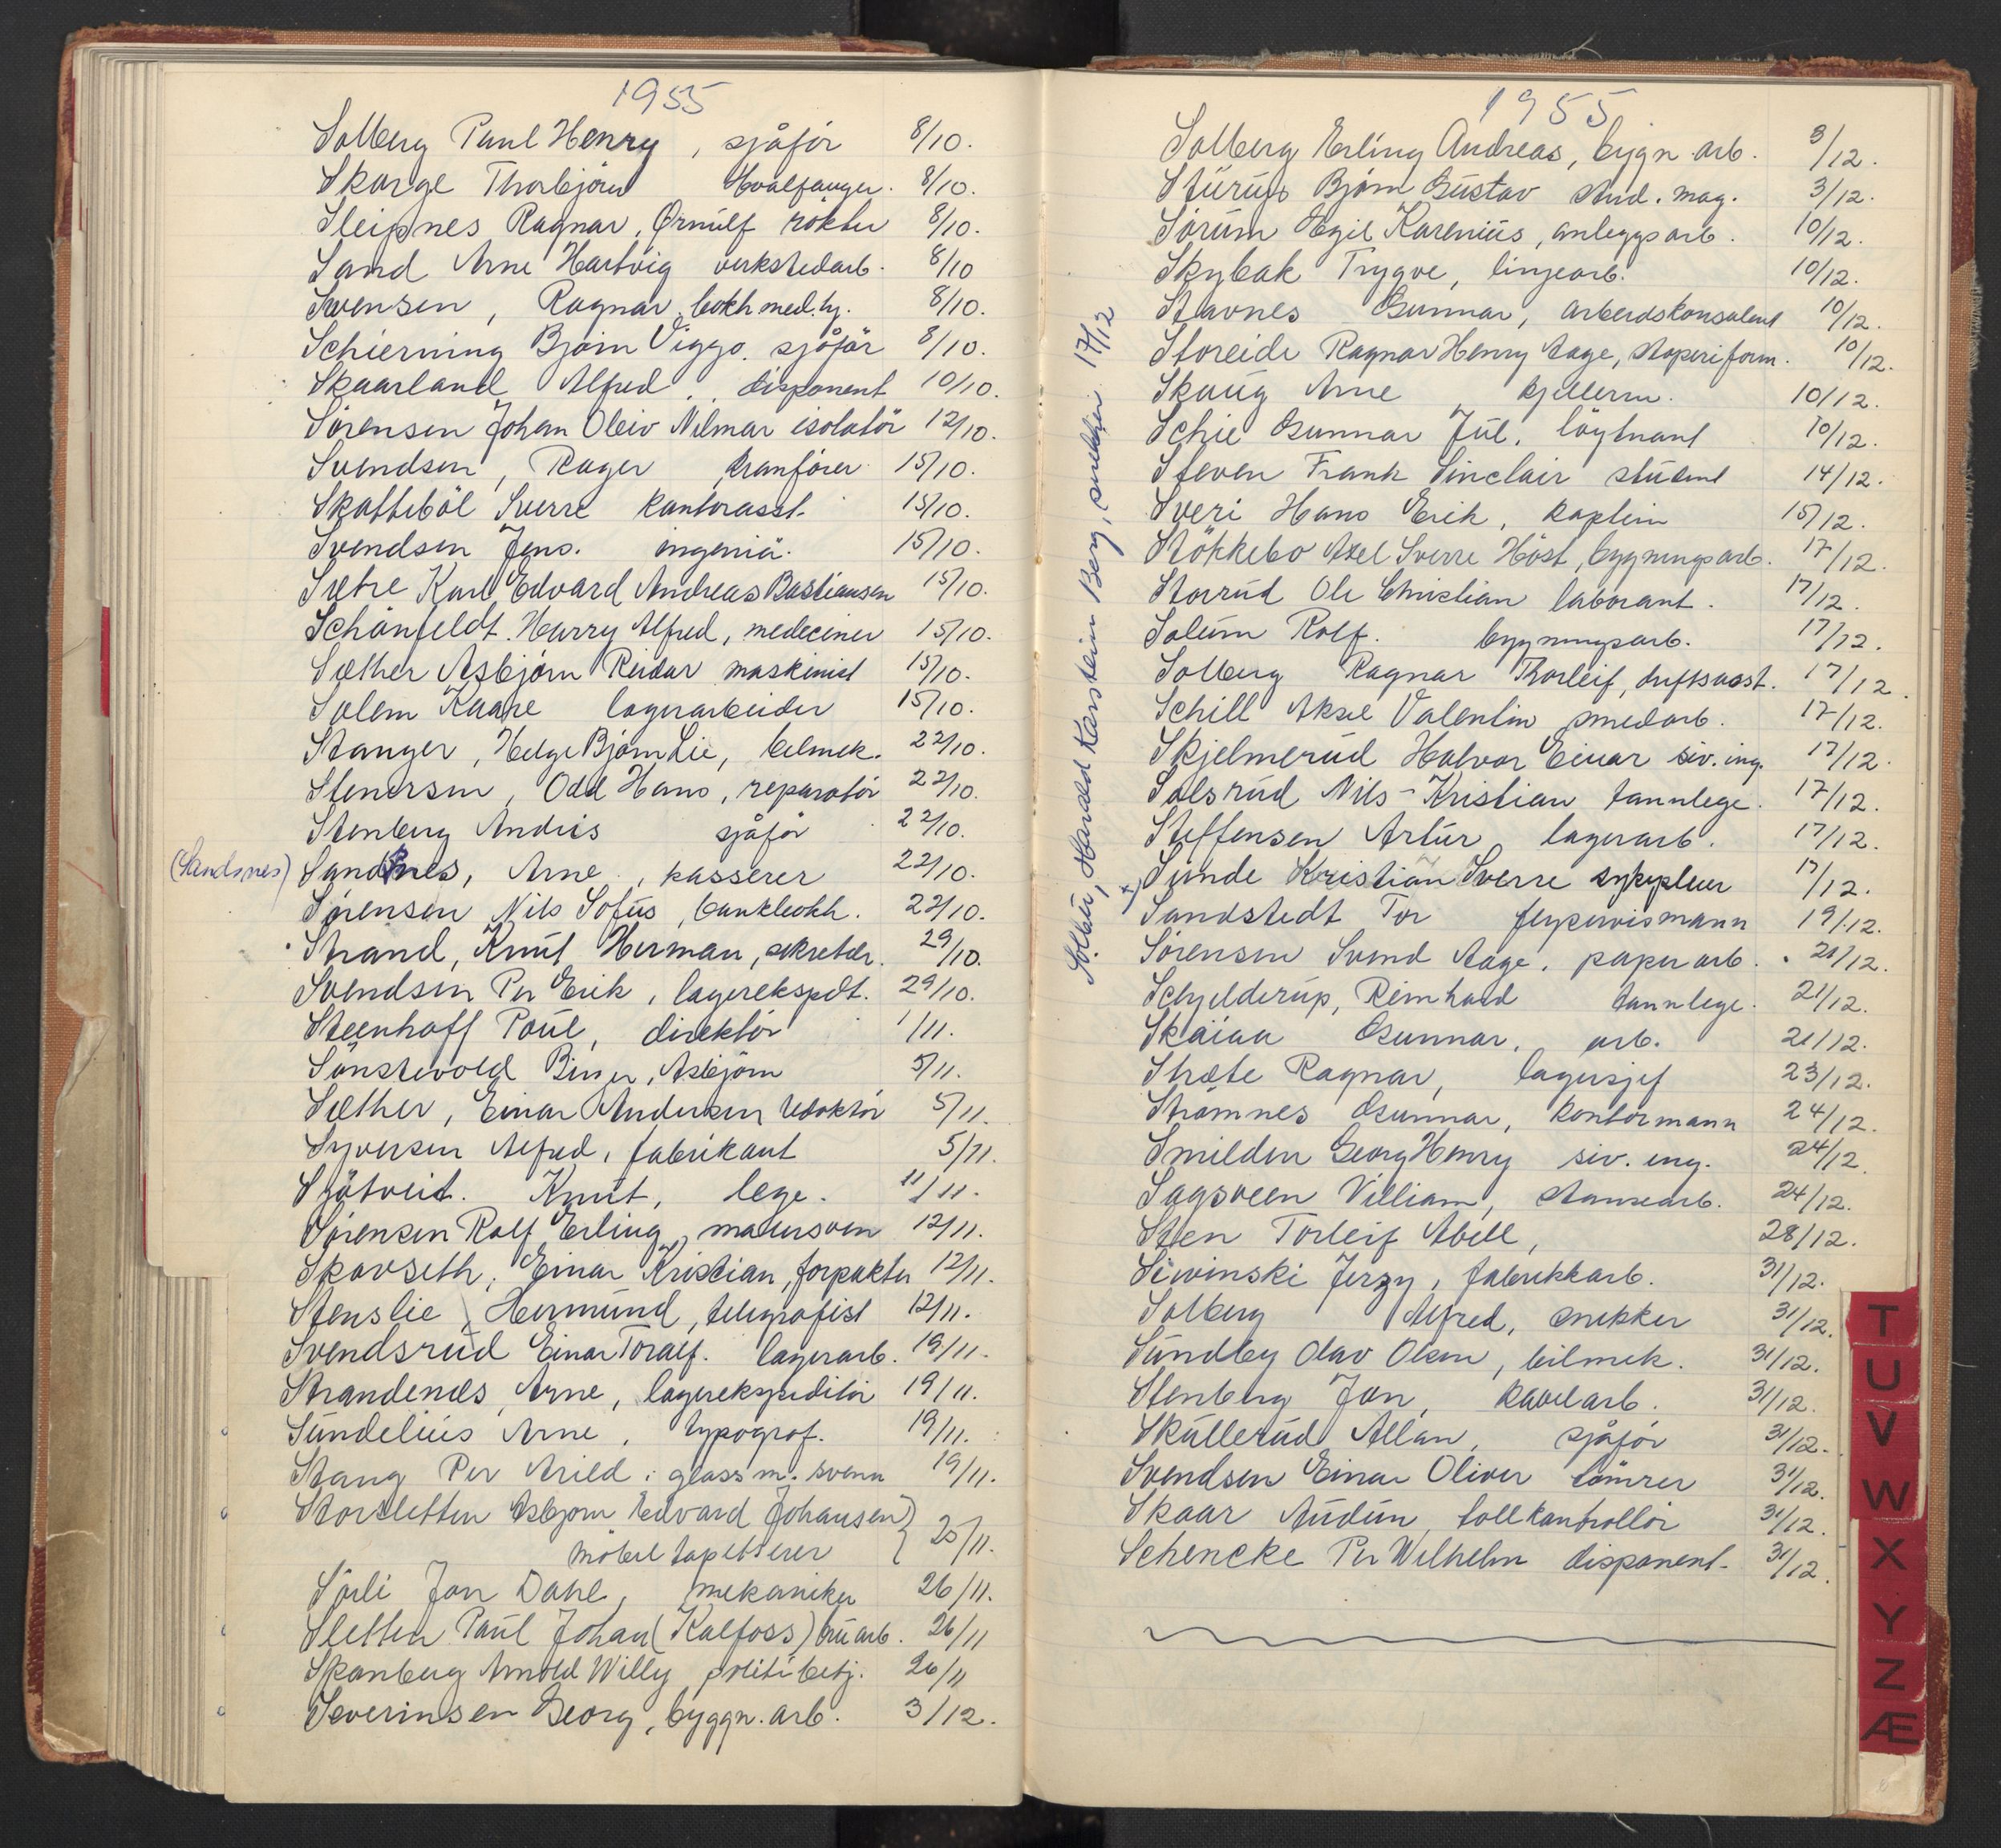 1955
Solberg Paul Henry, sjåför 8/10.
Skarge Thorbjörn Hvalfanger. 8/10.
Sleipnes Ragnar, Örnulf rökter 8/10.
Sand Arne Hartvig verkstedarb. 8/10
Svensen, Ragnar, bokh.med.hj. 8/10.
Schierning Björn Viggo. sjåför 8/10.
Skaarland Alfred, disponent 10/10.
Sörensen Johan Oleiv Nilmar isolatör 12/10.
Svendsen, Roger kranförer 15/10.
Skatteböl Sverre kontorasst. 15/10.
Svendsen Jens. ingeniö. 15/10.
Sætre Karl Edvard Andreas Bastiansen 15/10.
Schönfeldt. Harry Alfred, mediciner 15/10.
Sæther Asbjörn Reidar maskinist 15/10.
Solem Kaare lagerarbeider 15/10.
Stanger, Helge Björn Lie, bilmek. 22/10.
Stenersen, Odd Hans, reparatör 22/10.
Stenberg Andris sjåför 22/10.
(Sandsnes) Sandsnes, Arne, kasserer 22/10.
Sörensen Nils Sofus, bankbokh. 22/10.
Strand, Knut Herman, sekretær. 29/10.
Svendsen Per Erik, lagerekspdt. 29/10.
Steenhoff Poul, direktör 1/11.
Sönstevold Birger, Asbjörn 5/11.
Sæther, Einar Andersen redaktör 5/11.
Syversen Alfred, fabrikant 5/11.
Sjötveit. Knut, lege. 11/11.
Sörensen Rolf Erling, malersven 12/11.
Skavseth, Einar Kristian, forpakter 12/11.
Stenslie, Hermund, telegrafist 12/11.
Svendsrud Einar Toralf. lagerarb. 19/11.
Strandenæs Arne, lagerekspeditör 19/11.
Sundelius Arne, typograf. 19/11.
Stang Per Arild, glassm. svenn 19/11.
Storsletten Asbjörn Edvard Johansen)
möbeltapetserer 25/11.
Sörli Jon Dahl, mekaniker 26/11.
Sletten Paul Johan (Kalfoss) bruarb. 26/11
Skanberg Arnold Willy politibetj. 26/11
Severinsen Georg, byggn. arb. 3/12.
Solber, Harald Karstein Berg, snekker 17/12
1955
Solberg Erling Andreas, bygn. arb. 3/12.
Stürup Björn Gustav stud. mag. 3/12.
Sörum Egil Karenius, anleggsarb. 10/12.
Skybak Trygve, linjearb. 10/12.
Stavnes Gunnar, arbeidskonsulent 10/12.
Storeide Ragnar Henry Aage, støperiform. 10/12.
Skaug Arne, kjellerm. 10/12.
Schie Gunnar Jul. löytnant 10/12.
Steven Frank Sinclair student 14/12.
Sveri Hans Erik, kaptein 15/12.
Stökkebo Axel Sverre Höst, bygningsarb. 17/12.
Storrud Ole Christian laborant. 17/12.
Solum Rolf. bygningsarb. 17/12.
Solberg Ragnar Thorleif, driftsasst. 17/12.
Schill Aksel Valentin smedarb. 17/12.
Skjelmerud Halvor Einar siv. ing. 17/12.
Solsrud Nils-Kristian tannlege. 17/12.
Steffensen Artur lagerarb. 17/12.
Sunde Kristian Sverre sykepleier 17/12.
Sandstedt Tor flygervismann 19/12.
Sörensen Svend Aage. papirarb. 21/12.
Schjelderup, Reinhard tannlege. 21/12.
Skaiaa Gunnar, arb. 21/12.
Stræte Ragnar, lagersjef 23/12.
Strömnes Gunnar, kontormann 24/12.
Smilden Georg Henry siv. ing. 24/12.
Sagsveen Villiam, stansearb. 24/12.
Sten Torleif Abell, 28/12.
Siwinski Jerzy, fabrikkarb. 31/12.
Solberg Alfred, snekker 31/12.
Sundby Olav Olsen, bilmek. 31/12.
Stenberg Jon, kabelarb. 31/12.
Skullerud Allan, sjåför 31/12.
Svendsen Einar Oliver tömrer 31/12.
Skaar Audun, tollkontrollör 31/12.
Schencke Per Wilhelm disponent. 31/12.
T
U
V
W
X
Y
Z
Æ